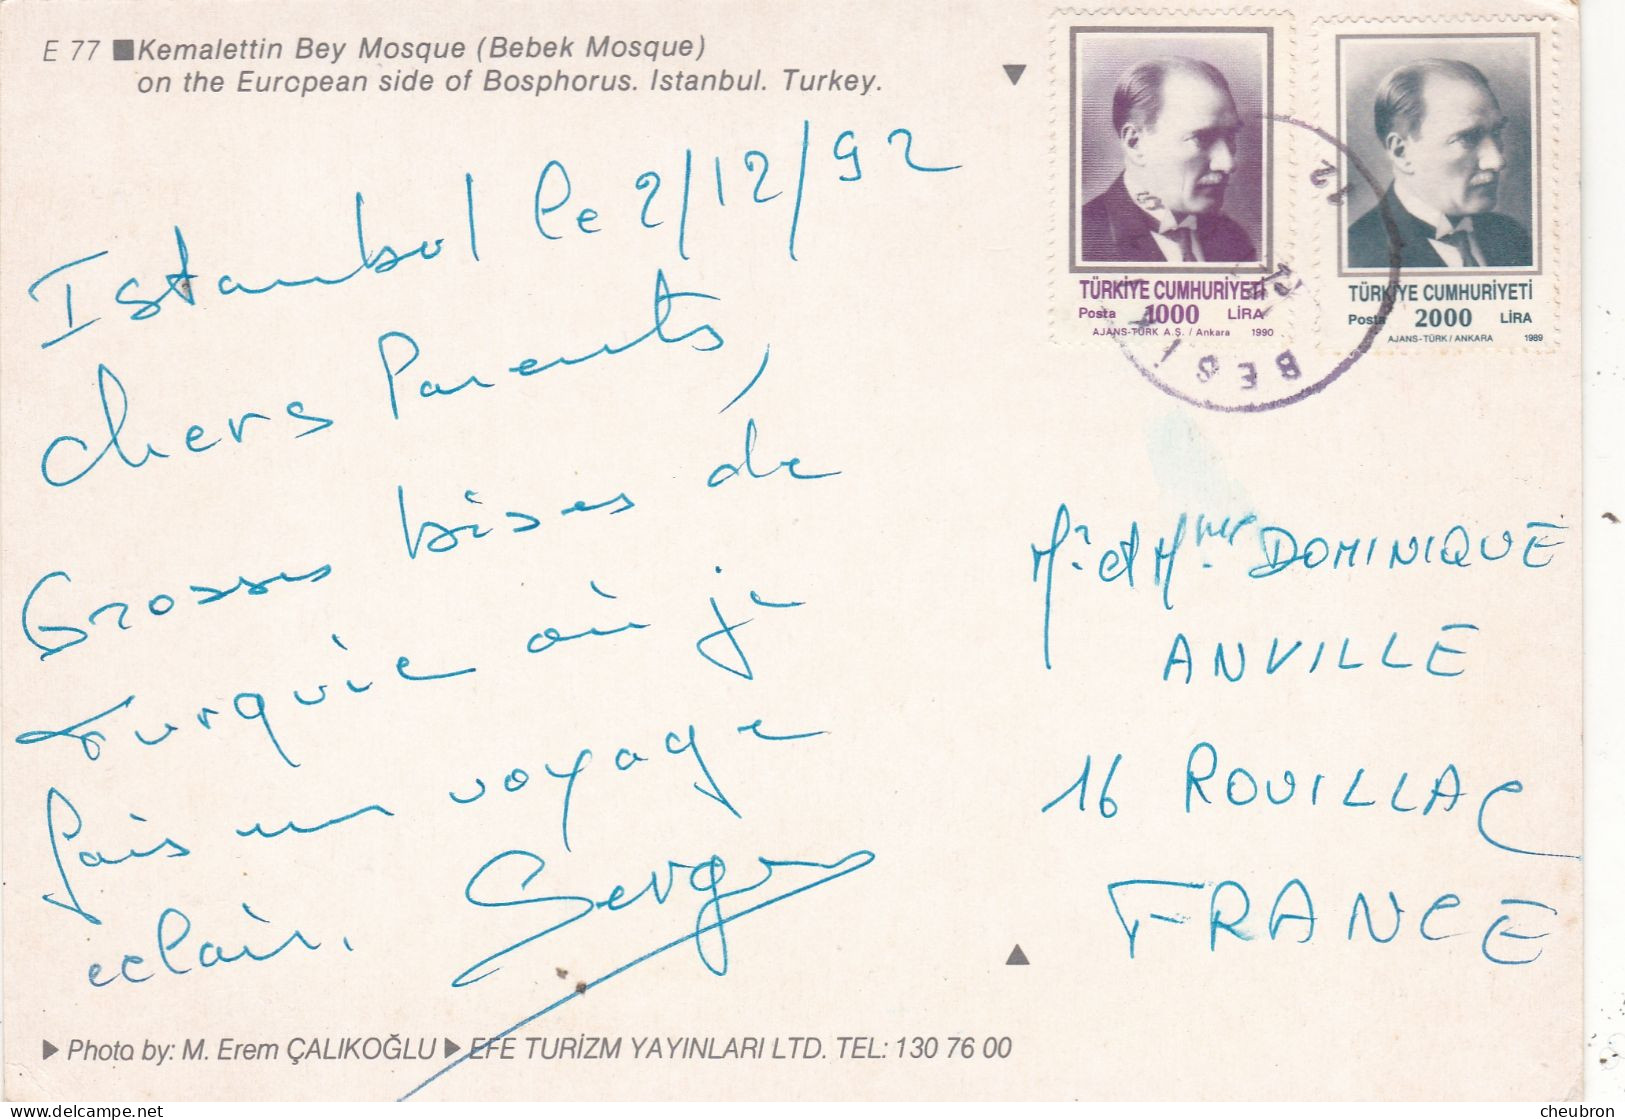 E 77 ■Kemalettin Bey Mosque (Bebek Mosque)
on the European side of Bosphorus. Istanbul. Turkey.
Istanbul le 2/12/92
chers Parents,
Grosses bises de
Turquie où je
fais un voyage
eclair.
TÜRKİYE CUMHURİYETİ
Posta 1000 LİRA
AJANS-TÜRK A.Ş. / Ankara 1990
TÜRKİYE CUMHURİYETİ
Posta 2000 LİRA
AJANS-TÜRK / ANKARA 1989
12
BEŞİ
Mr et Mme DOMINIQUE
ANVILLE
16 ROUILLAC
FRANCE
▶ Photo by: M. Erem ÇALIKOĞLU ▶ EFE TURİZM YAYINLARI LTD. TEL: 130 76 00
delcampe.net
cheubron